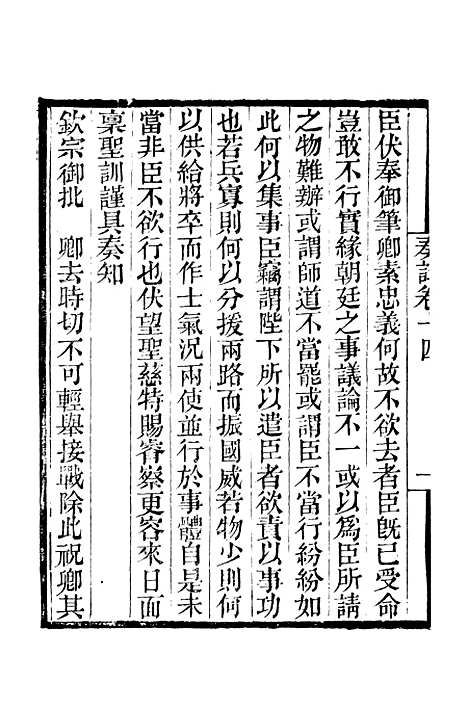 奏議卷十四
一
臣伏奉御筆卿素忠義何故不欲去者臣旣已受命
豈敢不行實緣朝廷之事議論不一或以爲臣所請
之物難辦或謂師道不當罷或謂臣不當行紛紛如
此何以集事臣竊謂陛下所以遣臣者欲責以事功
也若兵寡則何以分援兩路而振國威若物少則何
以供給將卒而作士氣況兩使並行於事體自是未
當非臣不欲行也伏望聖慈特賜睿察更容來日面
稟聖訓謹具奏知
欽宗御批　卿去時切不可輕舉接戰除此祝卿其